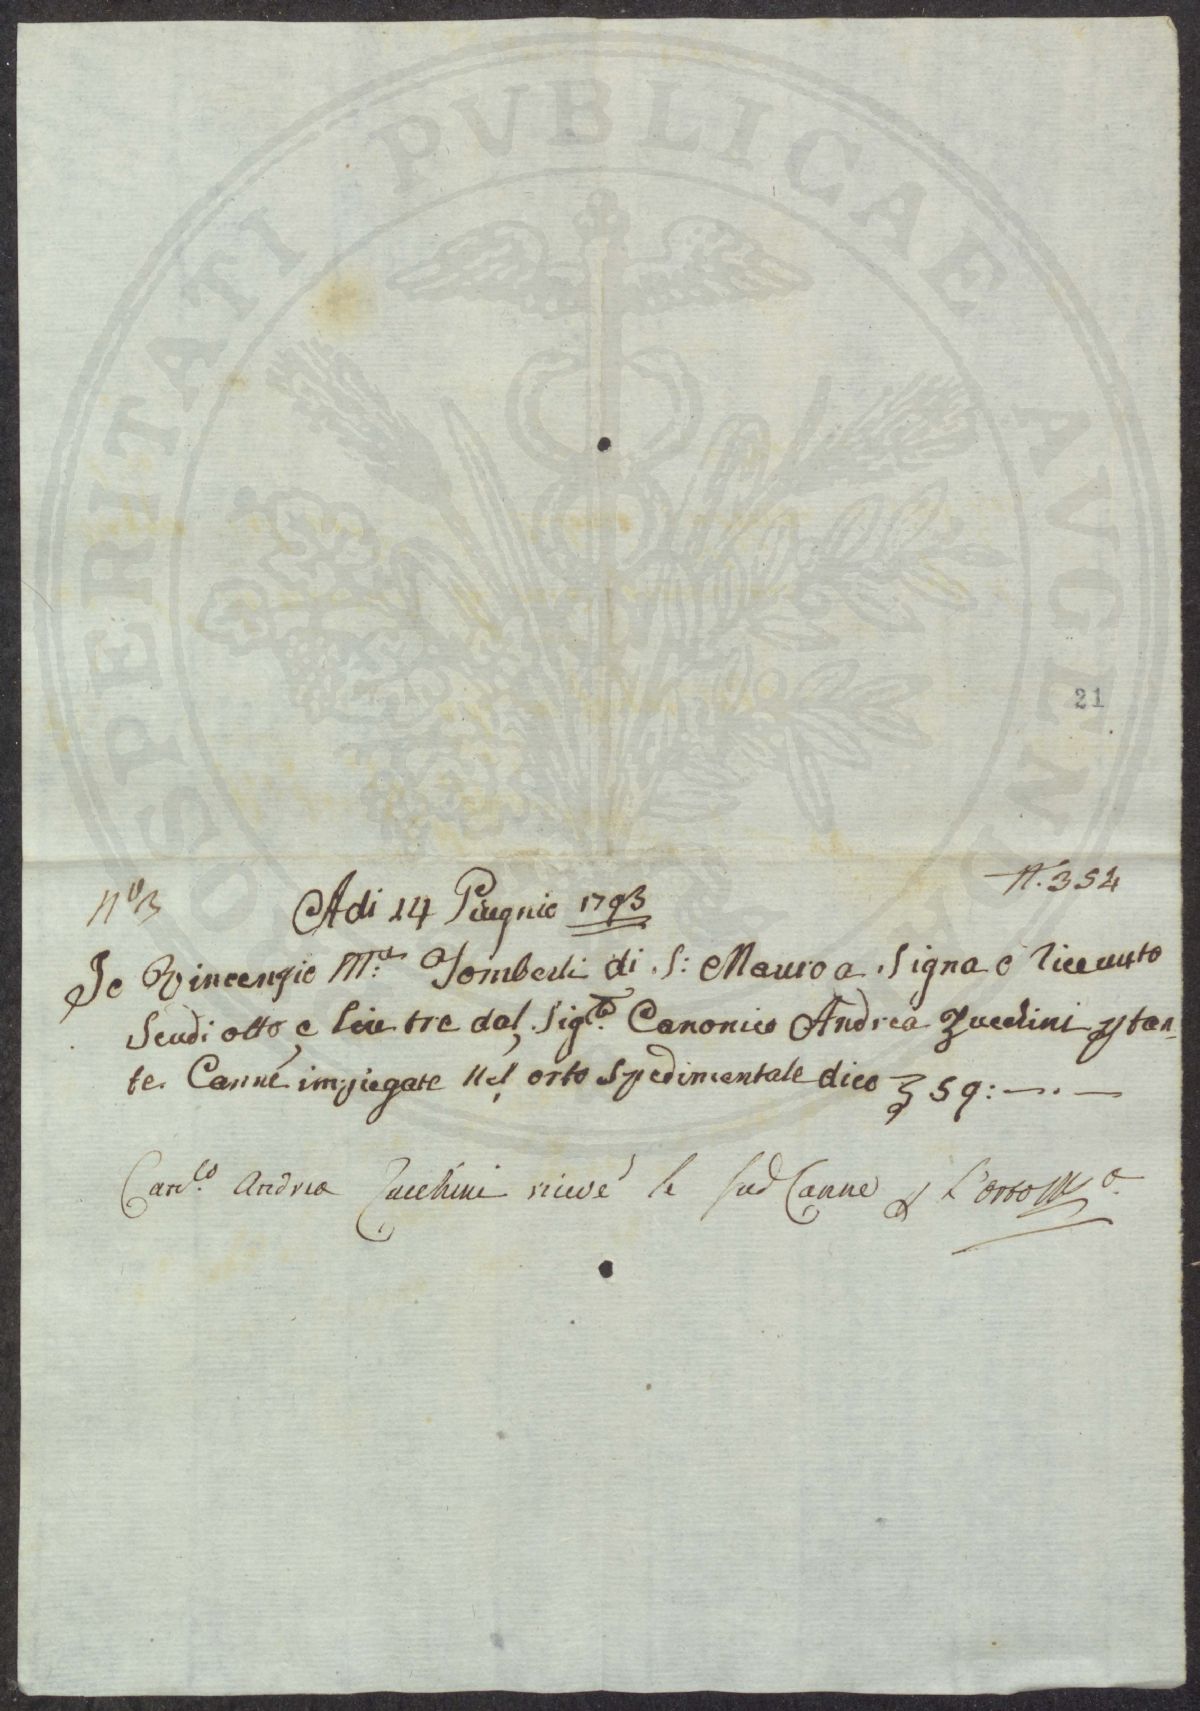 PROSPERITATI PVBLICAE AVGENDAE
21
N.º 3
N. 354
Adi 14 Giugnio 1793
Io Vincenzio M.ª Lomberdi di S: Mauro a Signa ò riceuuto
Scudi otto, e Lire tre dal Sig.re Canonico Andrea Zucchini p tan-
te Canne impiegate nel orto Sperimentale dico 59:—..—
Can.co Andrea Zucchini ricevé le sud Canne p l'orto